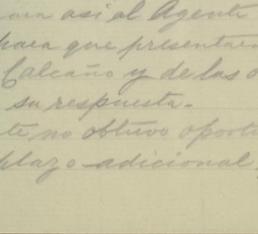 así al Agente
para que presentara
Calcaño y de las o
su respuesta.
te, no obtuvo oportu
plazo adicional,